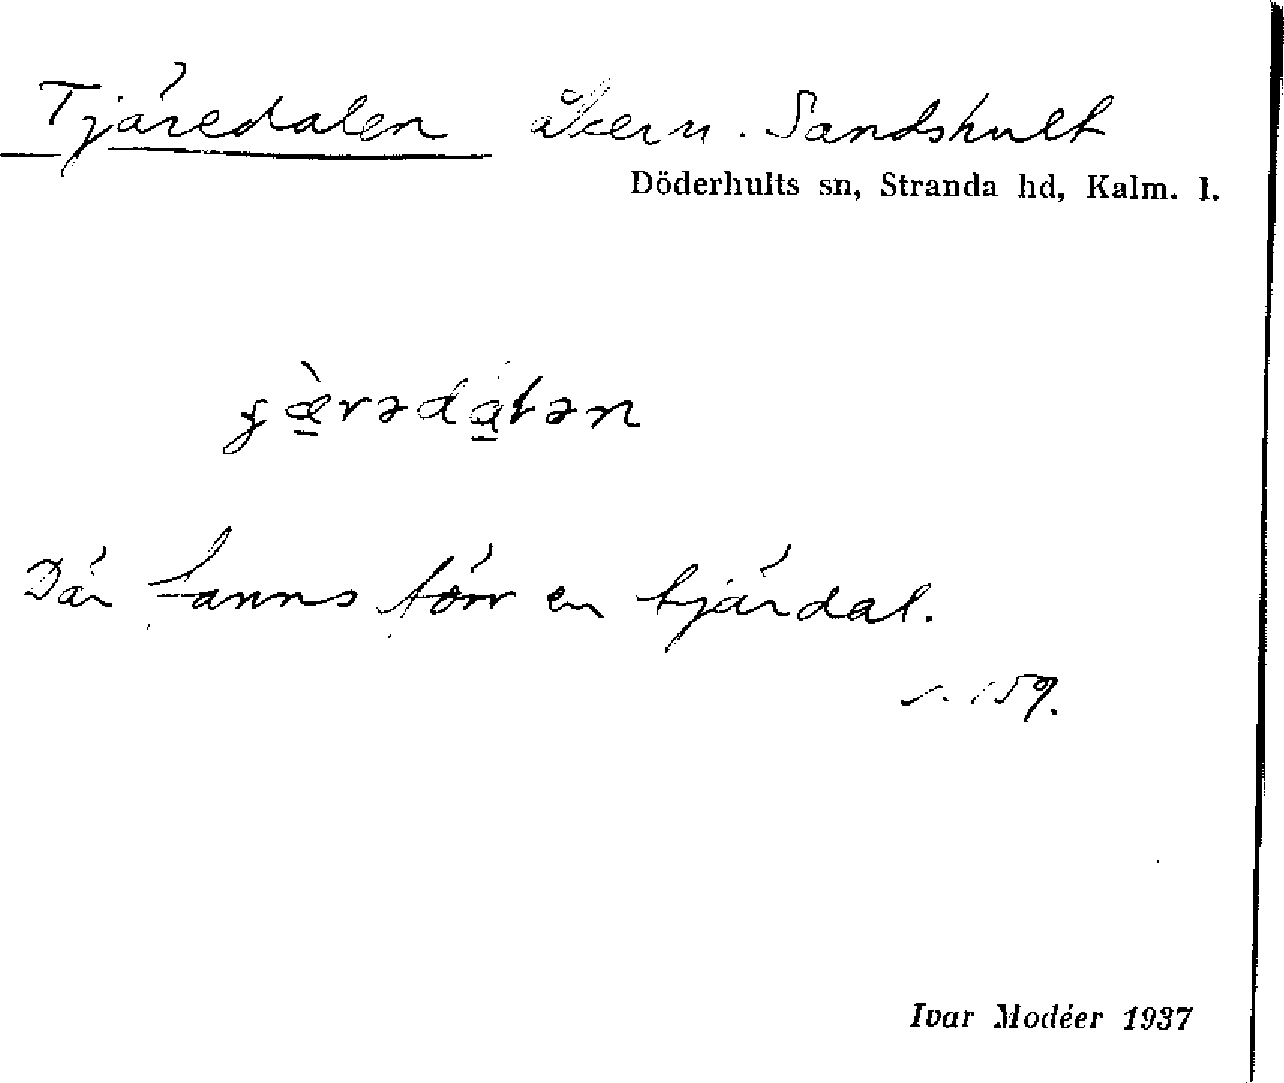 Tjäredalen åkern. Sandshult
Döderhults sn, Stranda hd, Kalm. l.
Där fanns förr en tjärdal.
s. 159.
Ivar Modéer 1937